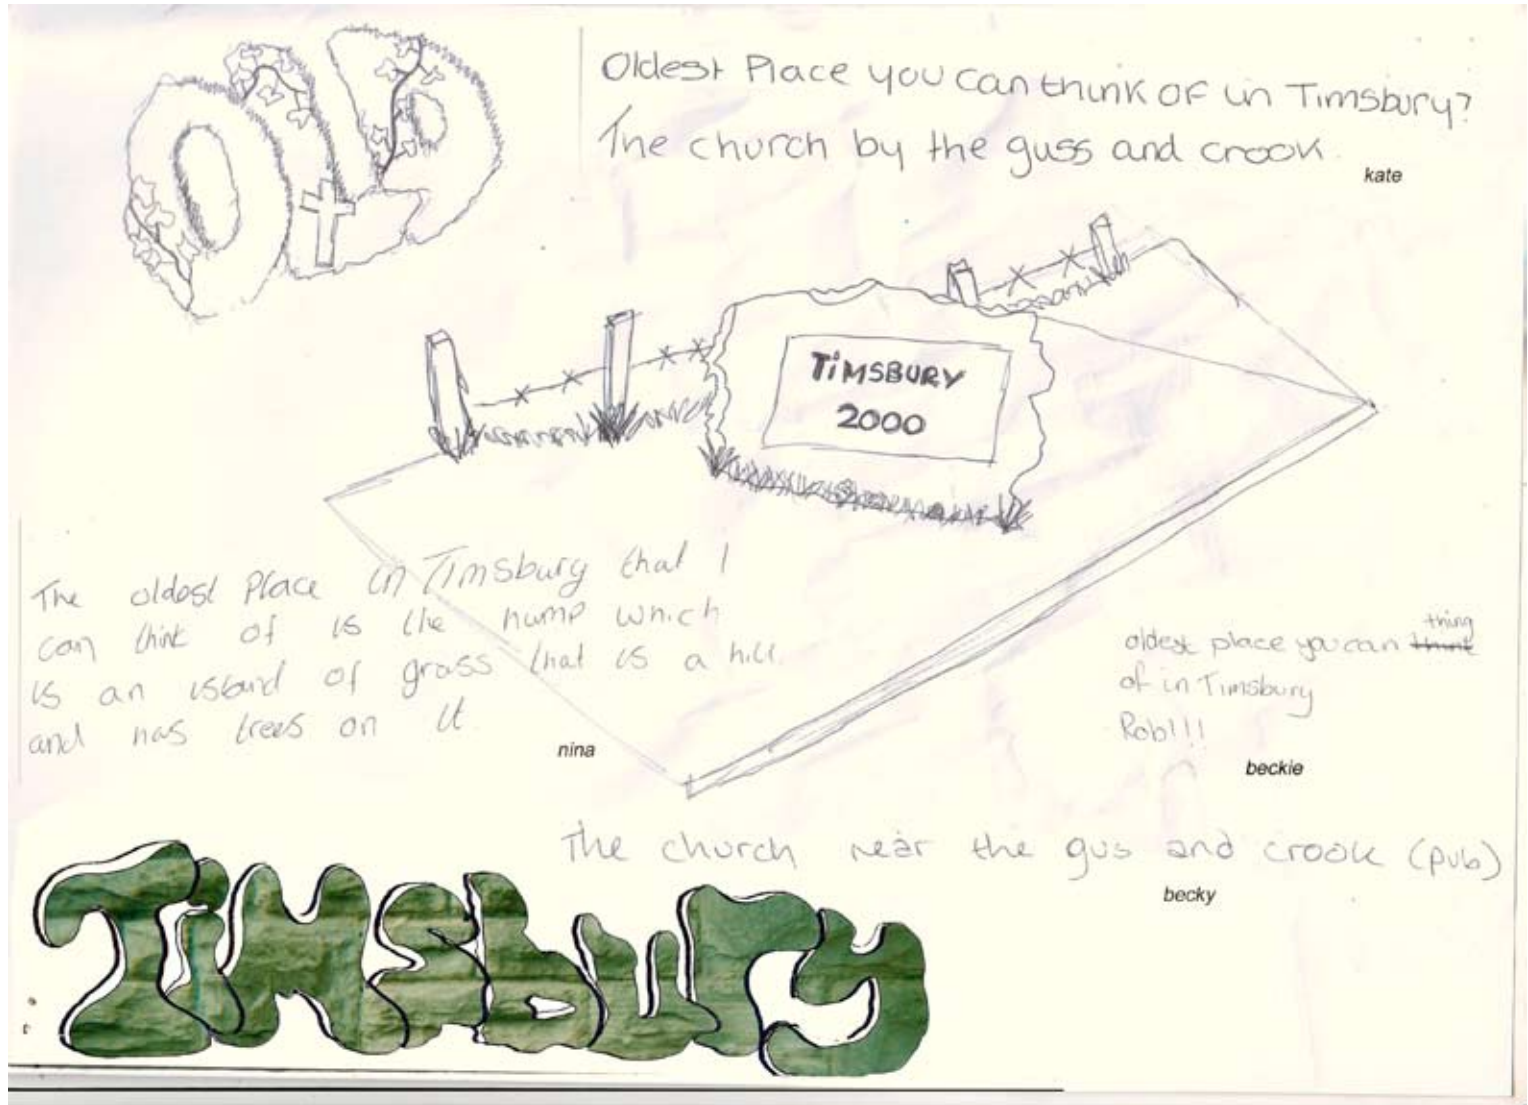 OLD
Oldest Place you can think of in Timsbury?
The church by the guss and crook
kate
TiMSBURY
2000
The oldest Place in Timsbury that I
can think of is the hump which
is an island of grass that is a hill
and has trees on it.
nina
thing
oldest place you can think
of in Timsbury
Rob!!!
beckie
The church near the gus and crook (pub)
becky
TiMSbury